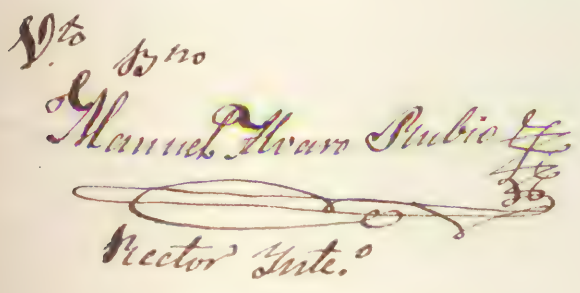 V.to Bno
Manuel Alvaro Rubio
Rector Ynte.o